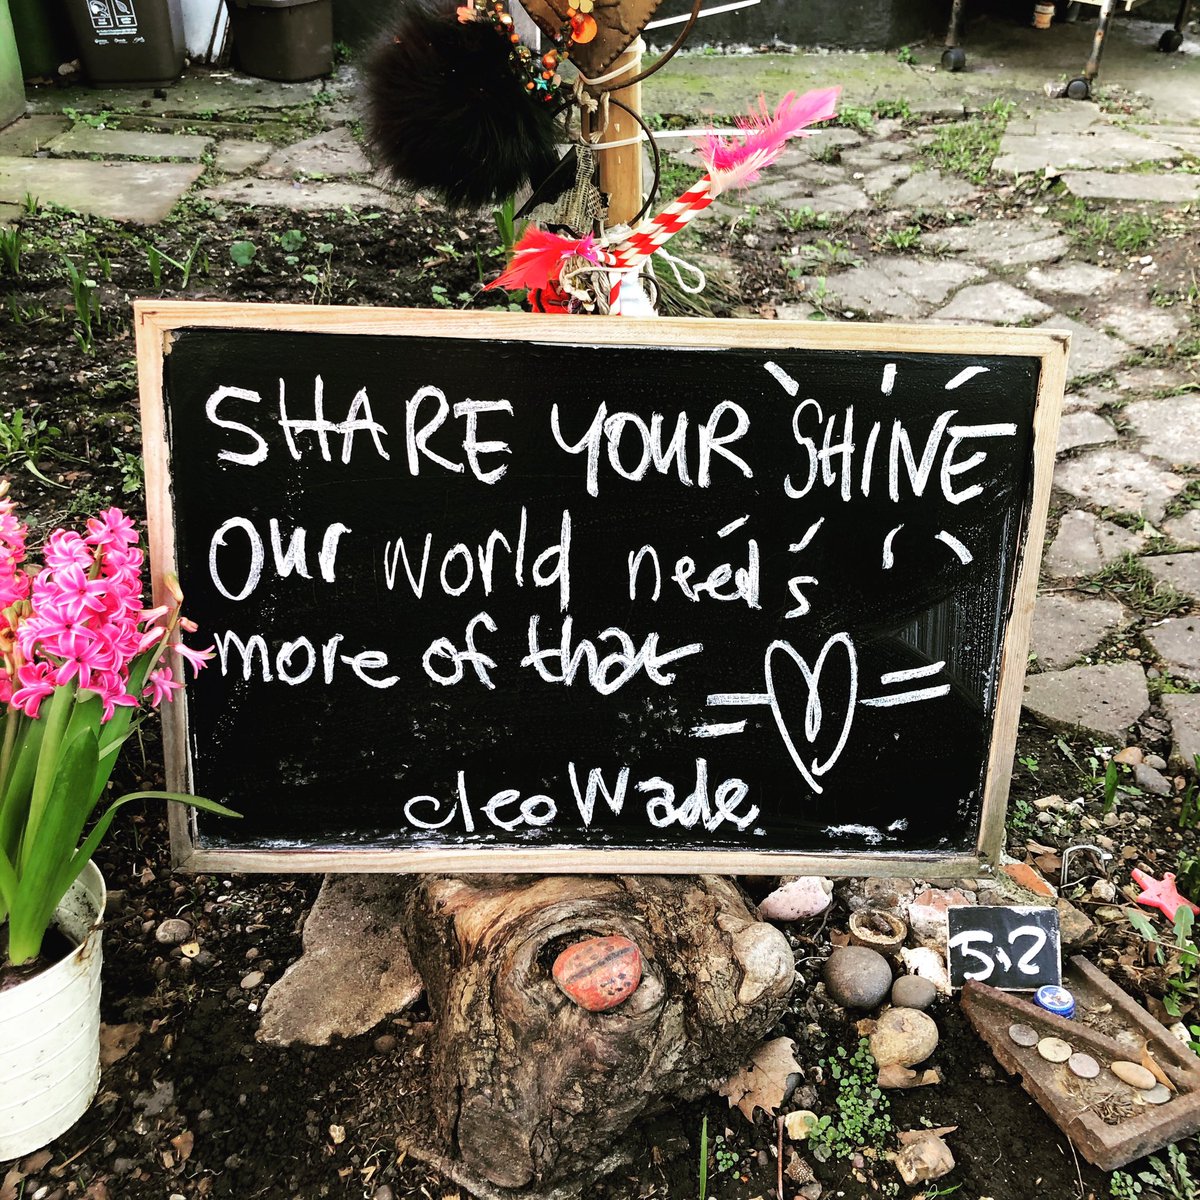 SHARE YOUR SHINE
our world needs
more of that
cleo Wade.